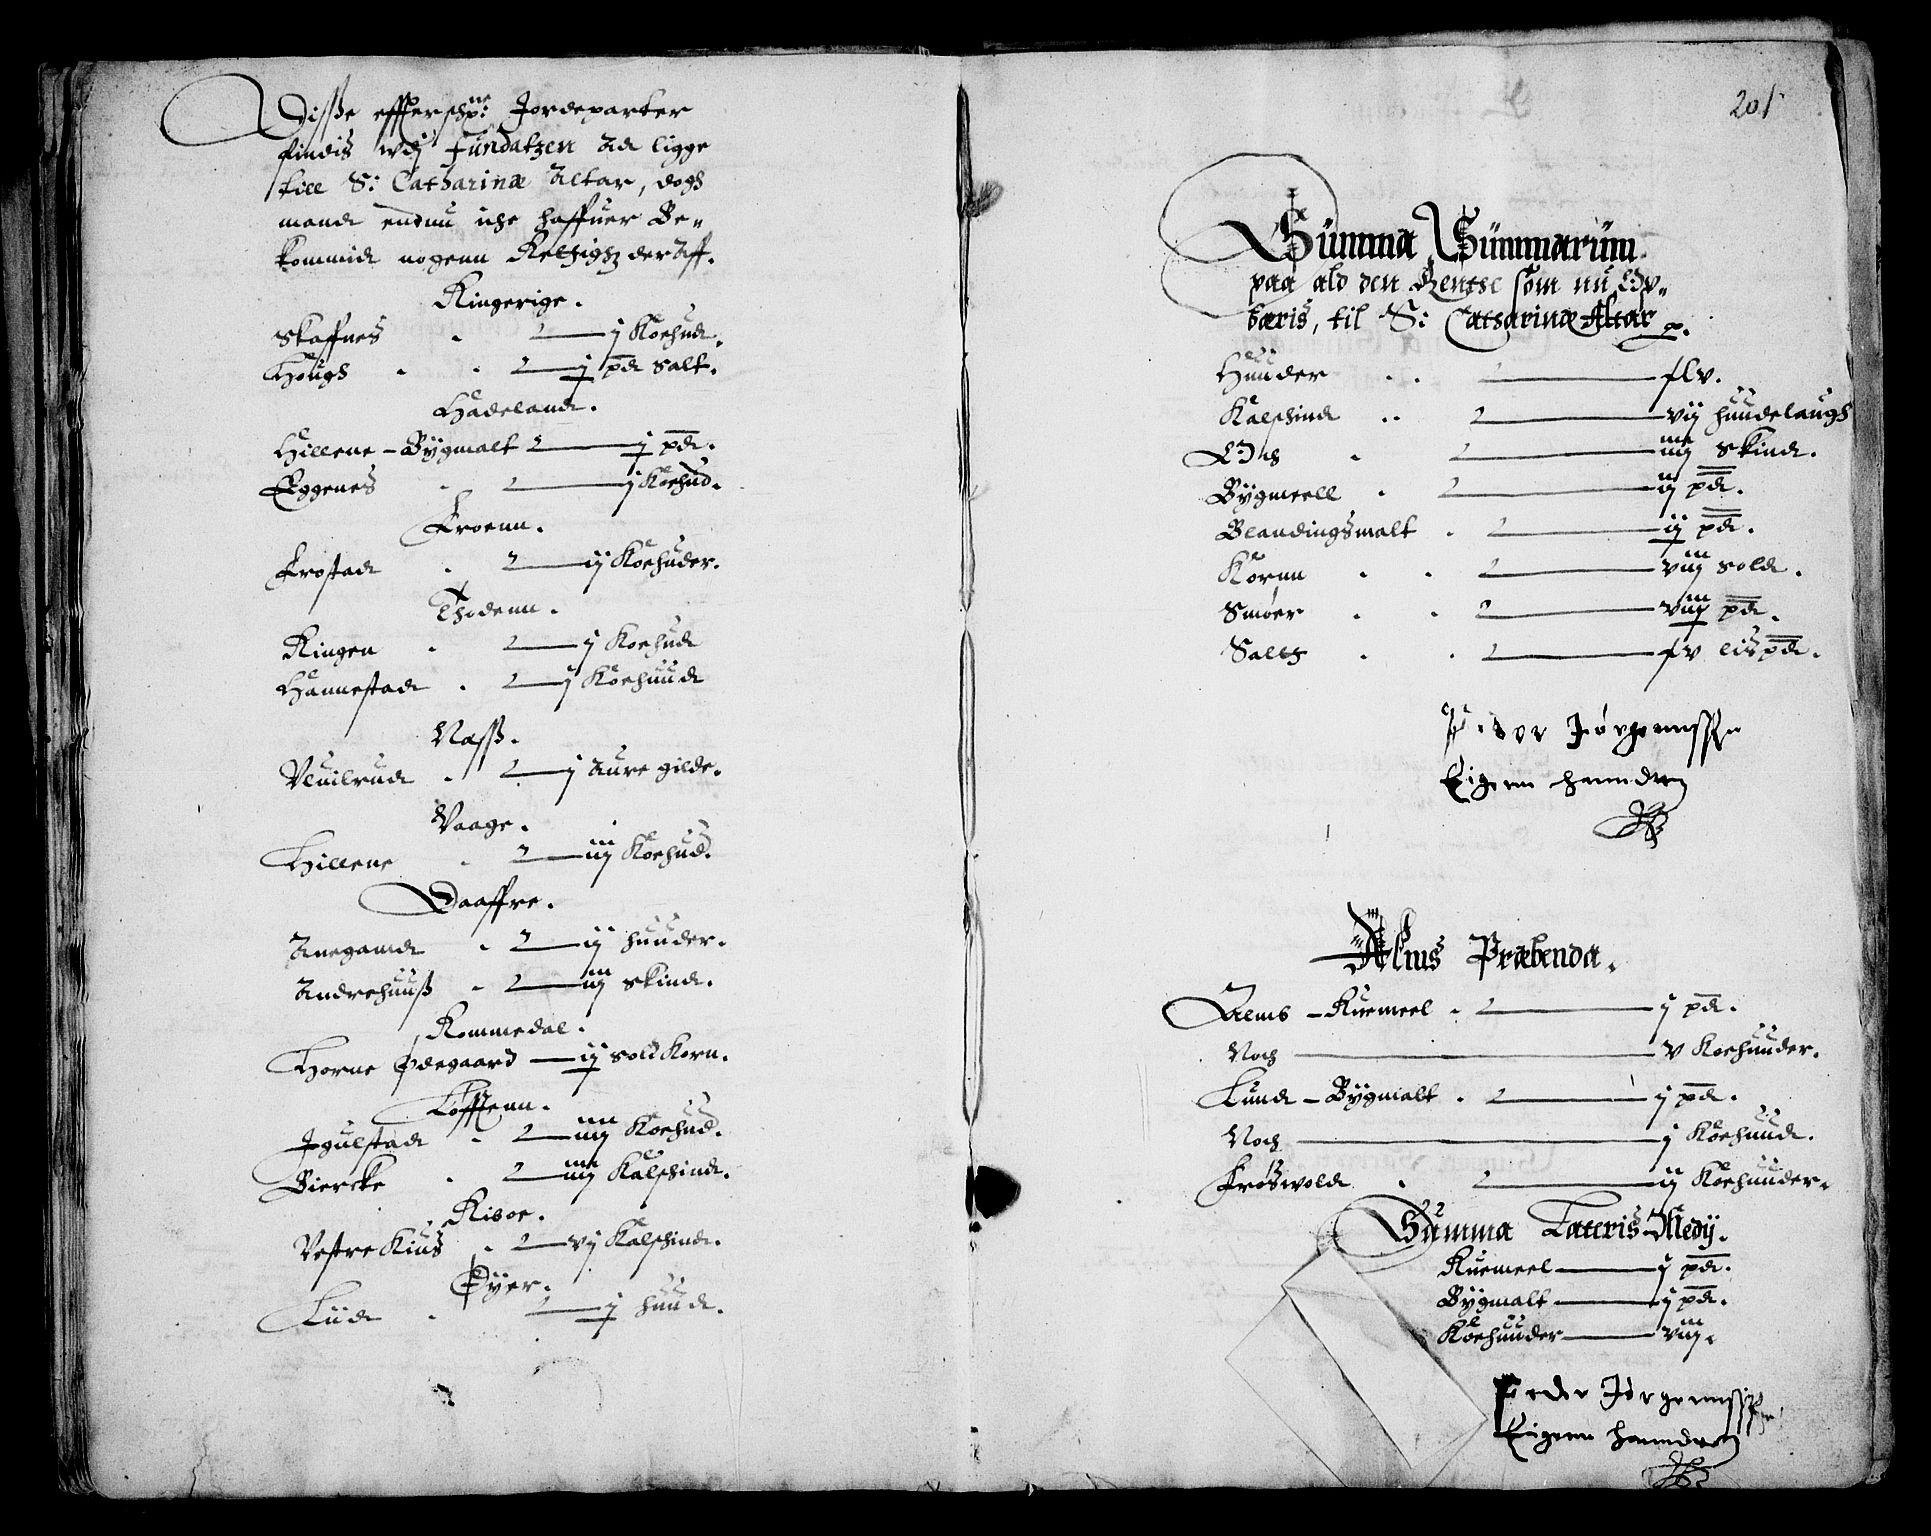 Disse effterschr: Jordeparter
findis vdj Fundatzen Ad ligge
till S: Catharinæ Altar, dogh
mand endnu iche haffuer Be-
kommid nogenn Rettighz der Aff.
Ringerige.
Skaffnes - j Koehud.
Hougs - j pd Salt.
Hadeland.
Hillene - Bÿgmalt j pd.
Eggenes - j Koehud.
Kroenn.
Frostad - ij Koehuder.
Thodenn.
Ringen - j Koehud
Hannestad - j Koehuud
Næss.
Vluilrud - j Aure gilde.
Vaage.
Hillene - iij Koehud.
Daaffre.
Anegamd - ij huuder.
Andrehuuss - iij skind.
Rommedal.
Horne Ødegaard - ij sold Korn.
Løffttenn.
Jgulstad - iiij Koehud.
Biercke - iiij Kalfskind.
Riboe.
Vestre Kius - vj Kalfskind.
Øyer.
Lüd - j huud.
201
Summa Summarum
paa ald den Rentse som nu Op-
bæris, til S: Catharinæ Altar p.
Huuder - xlv.
Kalfskind - vij huudelaugh
Och - iiij skind.
Bÿgmeell - iij pd.
Blandingsmalt - iij pd.
Kornn - viij sold.
Smøer - viij pd.
Saltt - xv lispd.
Peder Jørgennssen
Eigenn hanndt
Alius Præbenda.
Alms - Ruemeel - j pd.
Noch - v Koehuuder.
Lund - Bÿgmalt - j pd.
Noch - j Koehuud.
Frøswold - ij Koehuuder.
Summa Lateris Medij.
Ruemeel - j pd.
Bÿgmalt - j pd.
Koehuuder - viij.
Peder Jørgennssen
Eigenn hanndt